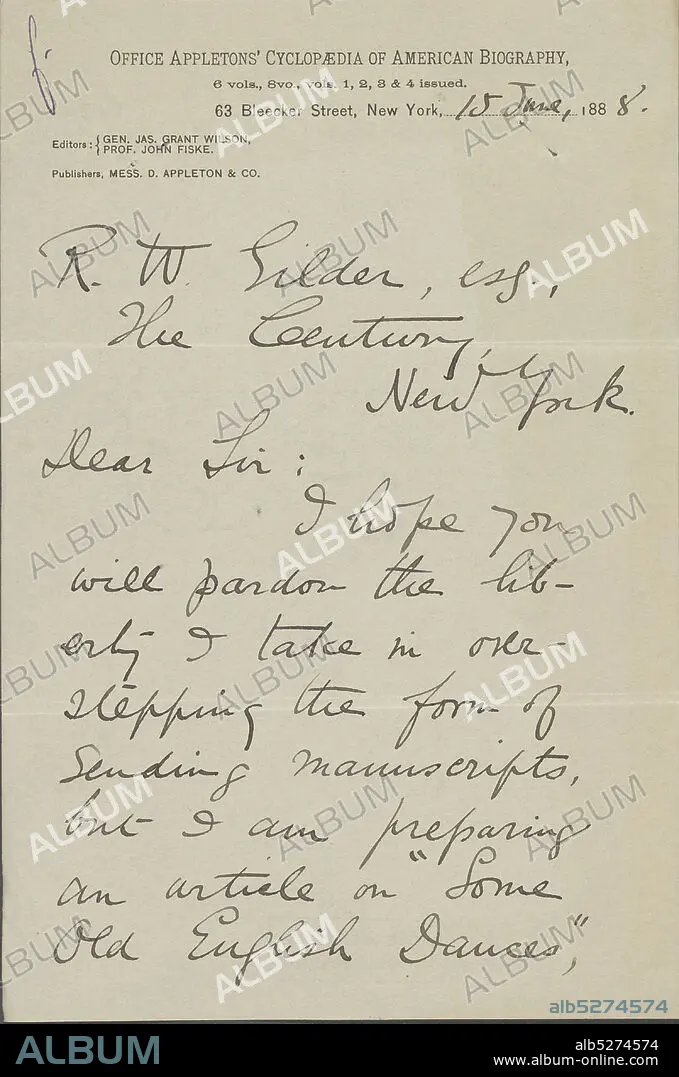 OFFICE APPLETONS' CYCLOPÆDIA OF AMERICAN BIOGRAPHY,
6 vols., 8vo., vols. 1, 2, 3 & 4 issued.
63 Bleecker Street, New York, 15 June, 1888.
Editors: { GEN. JAS. GRANT WILSON,
PROF. JOHN FISKE.
Publishers, MESS. D. APPLETON & CO.
R. W. Gilder, esq.,
The Century,
New York.
Dear Sir:
I hope you
will pardon the lib-
erty I take in over-
stepping the form of
sending manuscripts,
but I am preparing
an article on "Some
Old English Dances,"
alb5274574
ALBUM
alb5274574
www.album-online.com